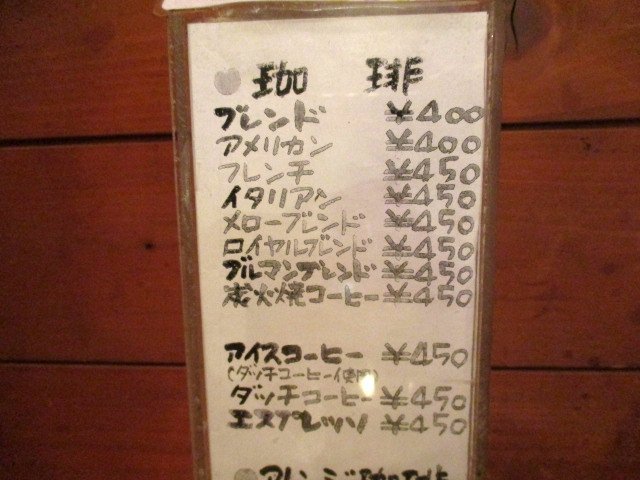 珈 琲
ブレンド ¥400
アメリカン ¥400
フレンチ ¥450
イタリアン ¥450
メローブレンド ¥450
ロイヤルブレンド ¥450
ブルマンブレンド ¥450
炭火焼コーヒー ¥450
アイスコーヒー ¥450
(ダッチコーヒー使用)
ダッチコーヒー ¥450
エスプレッソ ¥450
アレンジ珈琲